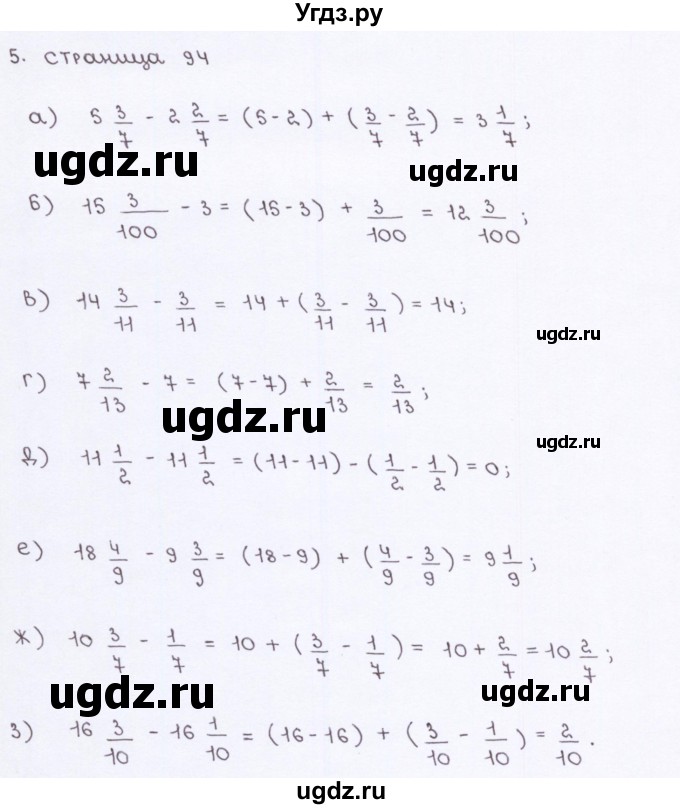 Угдз.ру
5. страница 94
а) 5 3/7 - 2 2/7 = (5-2) + (3/7 - 2/7) = 3 1/7;
ugdz.ru
ugdz.ru
б) 15 3/100 - 3 = (15-3) + 3/100 = 12 3/100;
в) 14 3/11 - 3/11 = 14 + (3/11 - 3/11) = 14;
ugdz.ru
г) 7 2/13 - 7 = (7-7) + 2/13 = 2/13;
ugdz.ru
ugdz.ru
д) 11 1/2 - 11 1/2 = (11-11) - (1/2 - 1/2) = 0;
е) 18 4/9 - 9 3/9 = (18-9) + (4/9 - 3/9) = 9 1/9;
ж) 10 3/7 - 1/7 = 10 + (3/7 - 1/7) = 10 + 2/7 = 10 2/7;
ugdz.ru
ugdz.ru
з) 16 3/10 - 16 1/10 = (16-16) + (3/10 - 1/10) = 2/10.
ugdz.ru